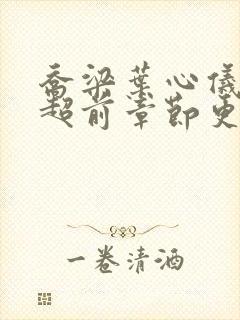 乔梁叶心儀
超前章节更
一卷清酒